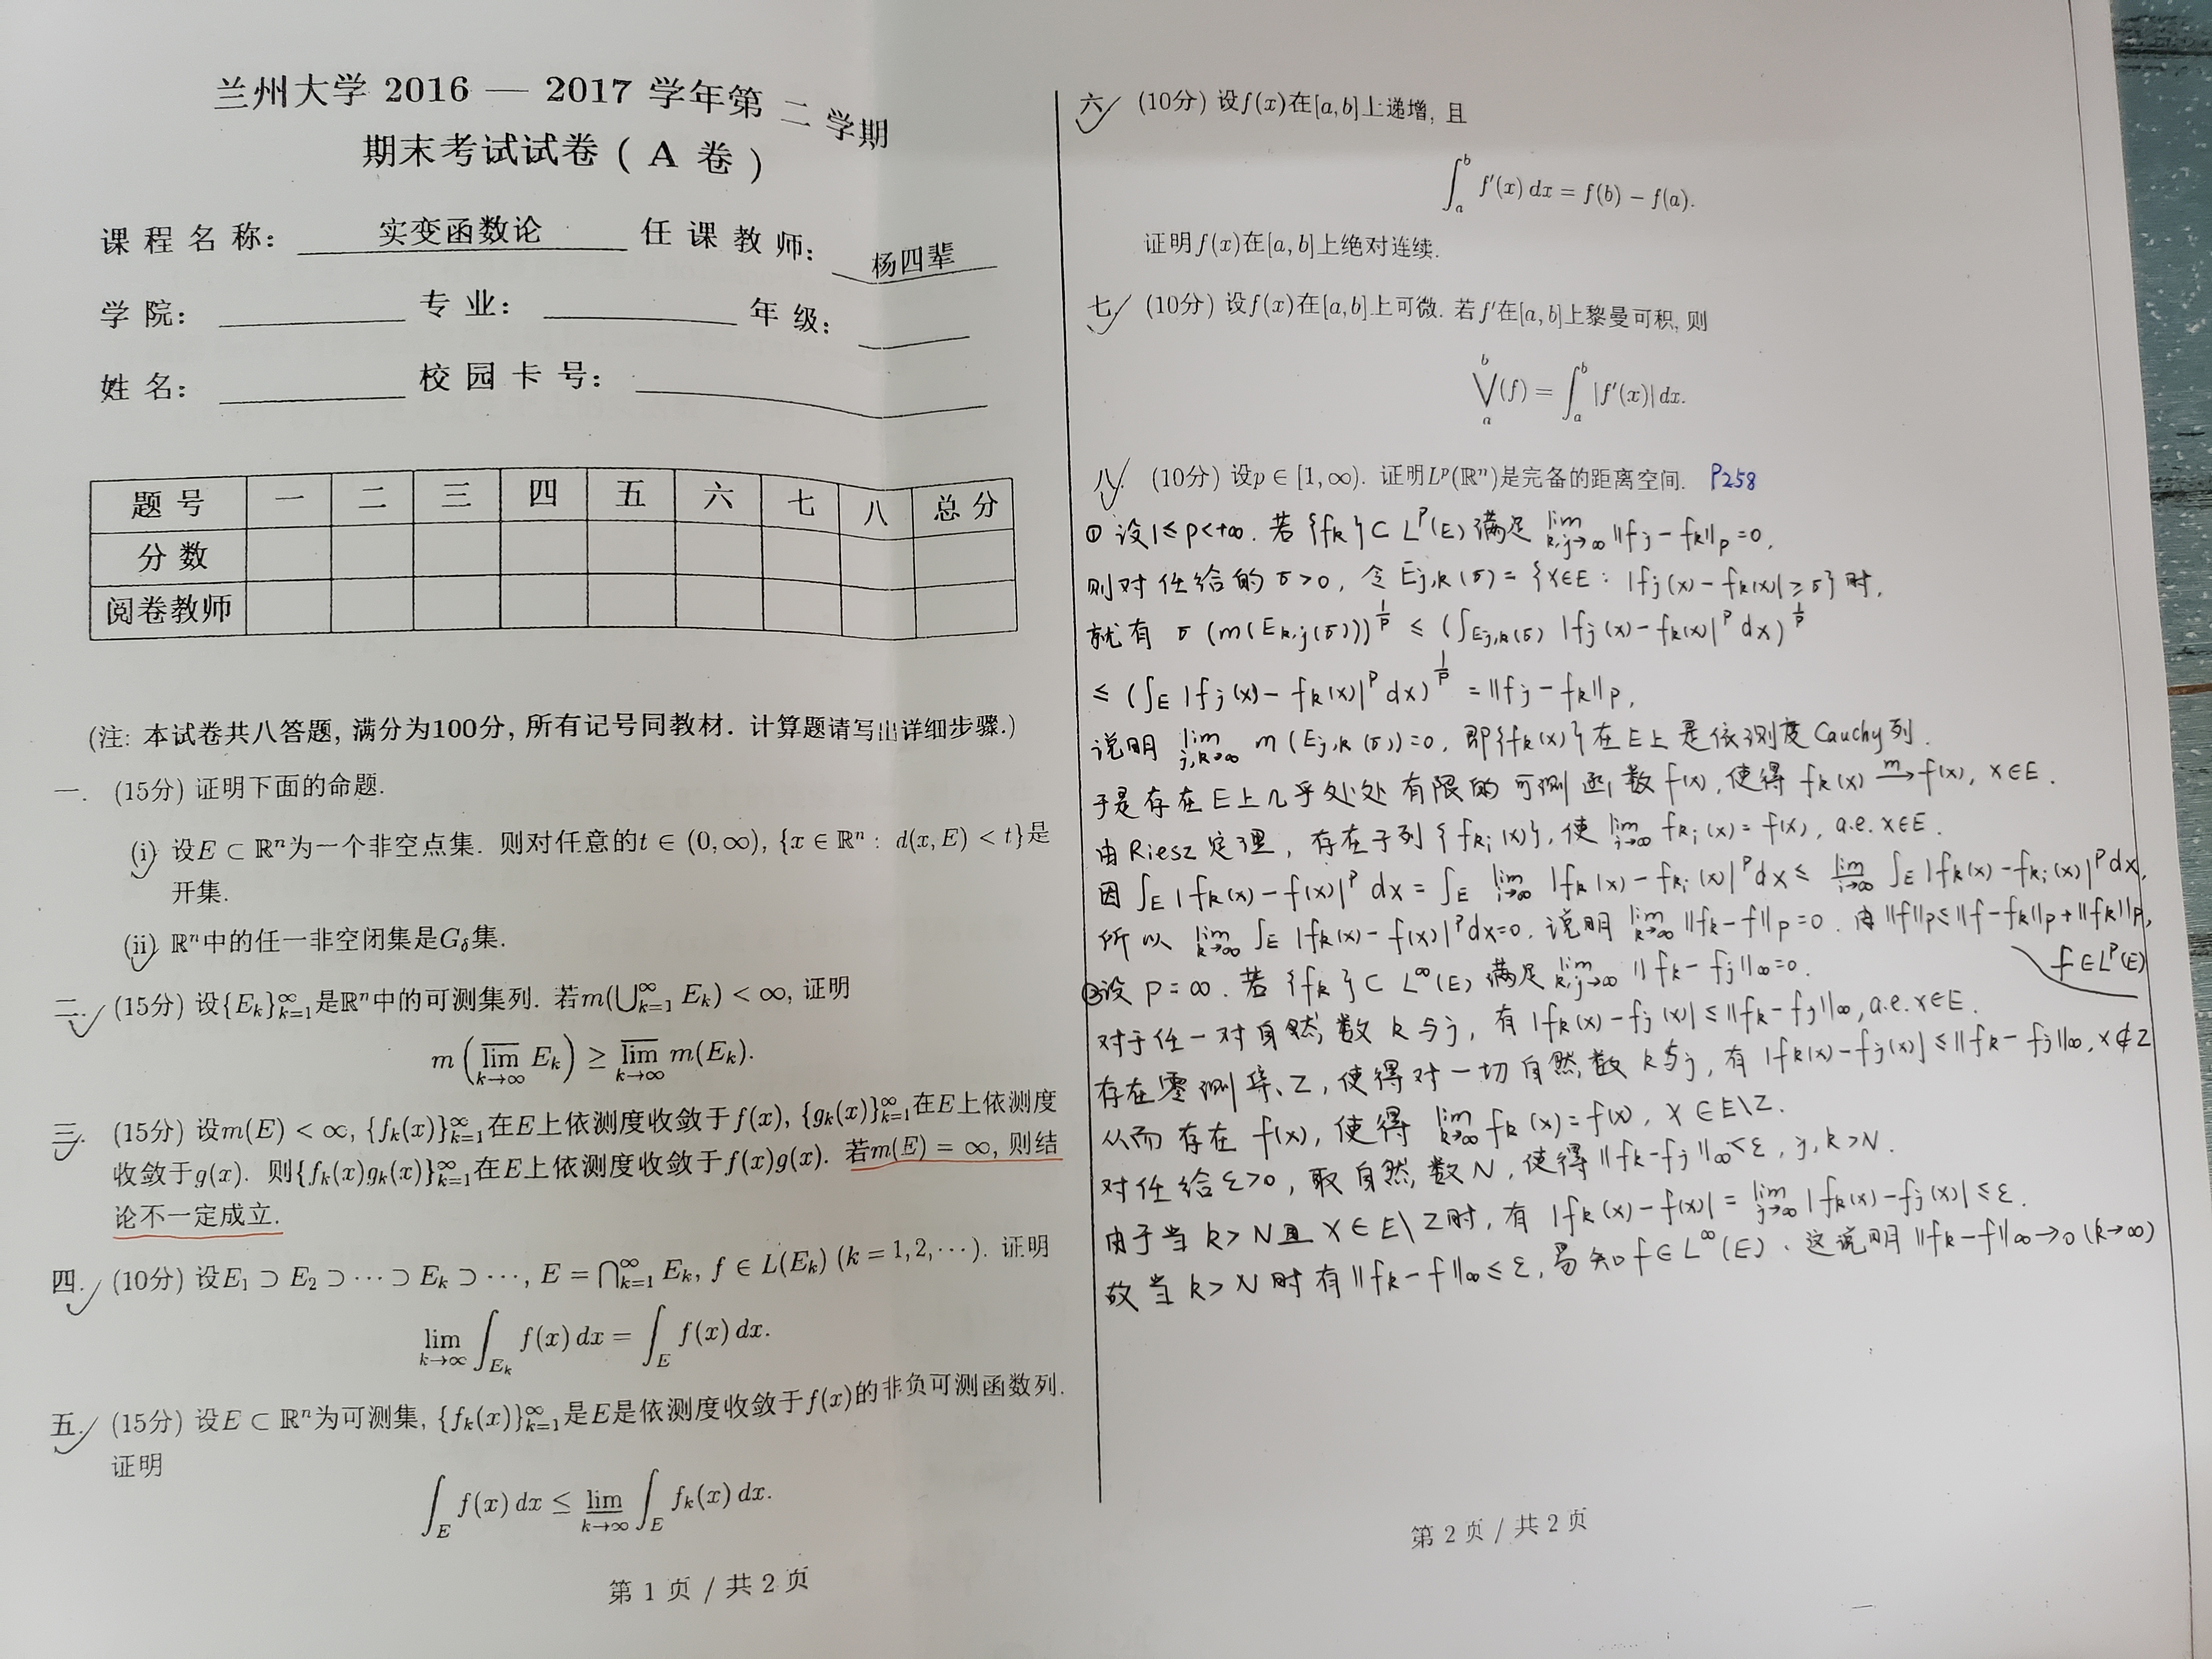 兰州大学 2016 — 2017 学年第 二 学期
期末考试试卷 ( A 卷 )
课 程 名 称: 实变函数论 任 课 教 师: 杨四辈
学 院: 专 业: 年 级:
姓 名: 校 园 卡 号:
题 号 一 二 三 四 五 六 七 八 总 分
分 数
阅卷教师
(注: 本试卷共八答题, 满分为100分, 所有记号同教材. 计算题请写出详细步骤.)
一. (15分) 证明下面的命题.
(i) 设E ⊂ ℝⁿ为一个非空点集. 则对任意的t ∈ (0, ∞), {x ∈ ℝⁿ : d(x, E) < t}是
开集.
(ii) ℝⁿ中的任一非空闭集是G_δ集.
二. (15分) 设{E_k}_{k=1}^∞是ℝⁿ中的可测集列. 若m(⋃_{k=1}^∞ E_k) < ∞, 证明
m ( \overline{lim}_{k→∞} E_k ) ≥ \overline{lim}_{k→∞} m(E_k).
三. (15分) 设m(E) < ∞, {f_k(x)}_{k=1}^∞在E上依测度收敛于f(x), {g_k(x)}_{k=1}^∞在E上依测度
收敛于g(x). 则{f_k(x)g_k(x)}_{k=1}^∞在E上依测度收敛于f(x)g(x). 若m(E) = ∞, 则结
论不一定成立.
四. (10分) 设E_1 ⊃ E_2 ⊃ ⋯ ⊃ E_k ⊃ ⋯, E = ⋂_{k=1}^∞ E_k, f ∈ L(E_k) (k = 1, 2, ⋯). 证明
lim_{k→∞} ∫_{E_k} f(x) dx = ∫_E f(x) dx.
五. (15分) 设E ⊂ ℝⁿ为可测集, {f_k(x)}_{k=1}^∞是E是依测度收敛于f(x)的非负可测函数列.
证明
∫_E f(x) dx ≤ \underline{lim}_{k→∞} ∫_E f_k(x) dx.
第 1 页 / 共 2 页
六. (10分) 设f(x)在[a, b]上递增, 且
∫_a^b f′(x) dx = f(b) − f(a).
证明f(x)在[a, b]上绝对连续.
七. (10分) 设f(x)在[a, b]上可微. 若f′在[a, b]上黎曼可积, 则
⋁_a^b (f) = ∫_a^b |f′(x)| dx.
八. (10分) 设p ∈ [1, ∞). 证明L^p(ℝⁿ)是完备的距离空间. P258
① 设1≤p<+∞. 若{f_k}⊂L^p(E)满足 lim_{k,j→∞} ‖f_j−f_k‖_p=0,
则对任给的σ>0, 令E_{j,k}(σ)={x∈E: |f_j(x)−f_k(x)|≥σ}时,
就有 σ(m(E_{k,j}(σ)))^{1/p} ≤ (∫_{E_{j,k}(σ)} |f_j(x)−f_k(x)|^p dx)^{1/p}
≤ (∫_E |f_j(x)−f_k(x)|^p dx)^{1/p} = ‖f_j−f_k‖_p,
说明 lim_{j,k→∞} m(E_{j,k}(σ))=0, 即{f_k(x)}在E上是依测度Cauchy列.
于是存在E上几乎处处有限的可测函数f(x), 使得f_k(x) \xrightarrow{m} f(x), x∈E.
由Riesz定理, 存在子列{f_{k_i}(x)}, 使 lim_{i→∞} f_{k_i}(x)=f(x), a.e. x∈E.
因∫_E |f_k(x)−f(x)|^p dx = ∫_E lim_{i→∞} |f_k(x)−f_{k_i}(x)|^p dx ≤ \underline{lim}_{i→∞} ∫_E |f_k(x)−f_{k_i}(x)|^p dx,
所以 lim_{k→∞} ∫_E |f_k(x)−f(x)|^p dx=0. 说明 lim_{k→∞} ‖f_k−f‖_p=0. 由‖f‖_p≤‖f−f_k‖_p+‖f_k‖_p,
f∈L^p(E)
②设 p=∞. 若{f_k}⊂L^∞(E)满足 lim_{k,j→∞} ‖f_k−f_j‖_∞=0.
对于任一对自然数k与j, 有|f_k(x)−f_j(x)|≤‖f_k−f_j‖_∞, a.e. x∈E.
存在零测集Z, 使得对一切自然数k与j, 有|f_k(x)−f_j(x)|≤‖f_k−f_j‖_∞, x∉Z
从而存在f(x), 使得 lim_{k→∞} f_k(x)=f(x), x∈E\Z.
对任给ε>0, 取自然数N, 使得‖f_k−f_j‖_∞≤ε, j,k>N.
由于当k>N且x∈E\Z时, 有|f_k(x)−f(x)|= lim_{j→∞} |f_k(x)−f_j(x)|≤ε.
故当k>N时有‖f_k−f‖_∞≤ε, 易知f∈L^∞(E). 这说明‖f_k−f‖_∞→0 (k→∞)
第 2 页 / 共 2 页